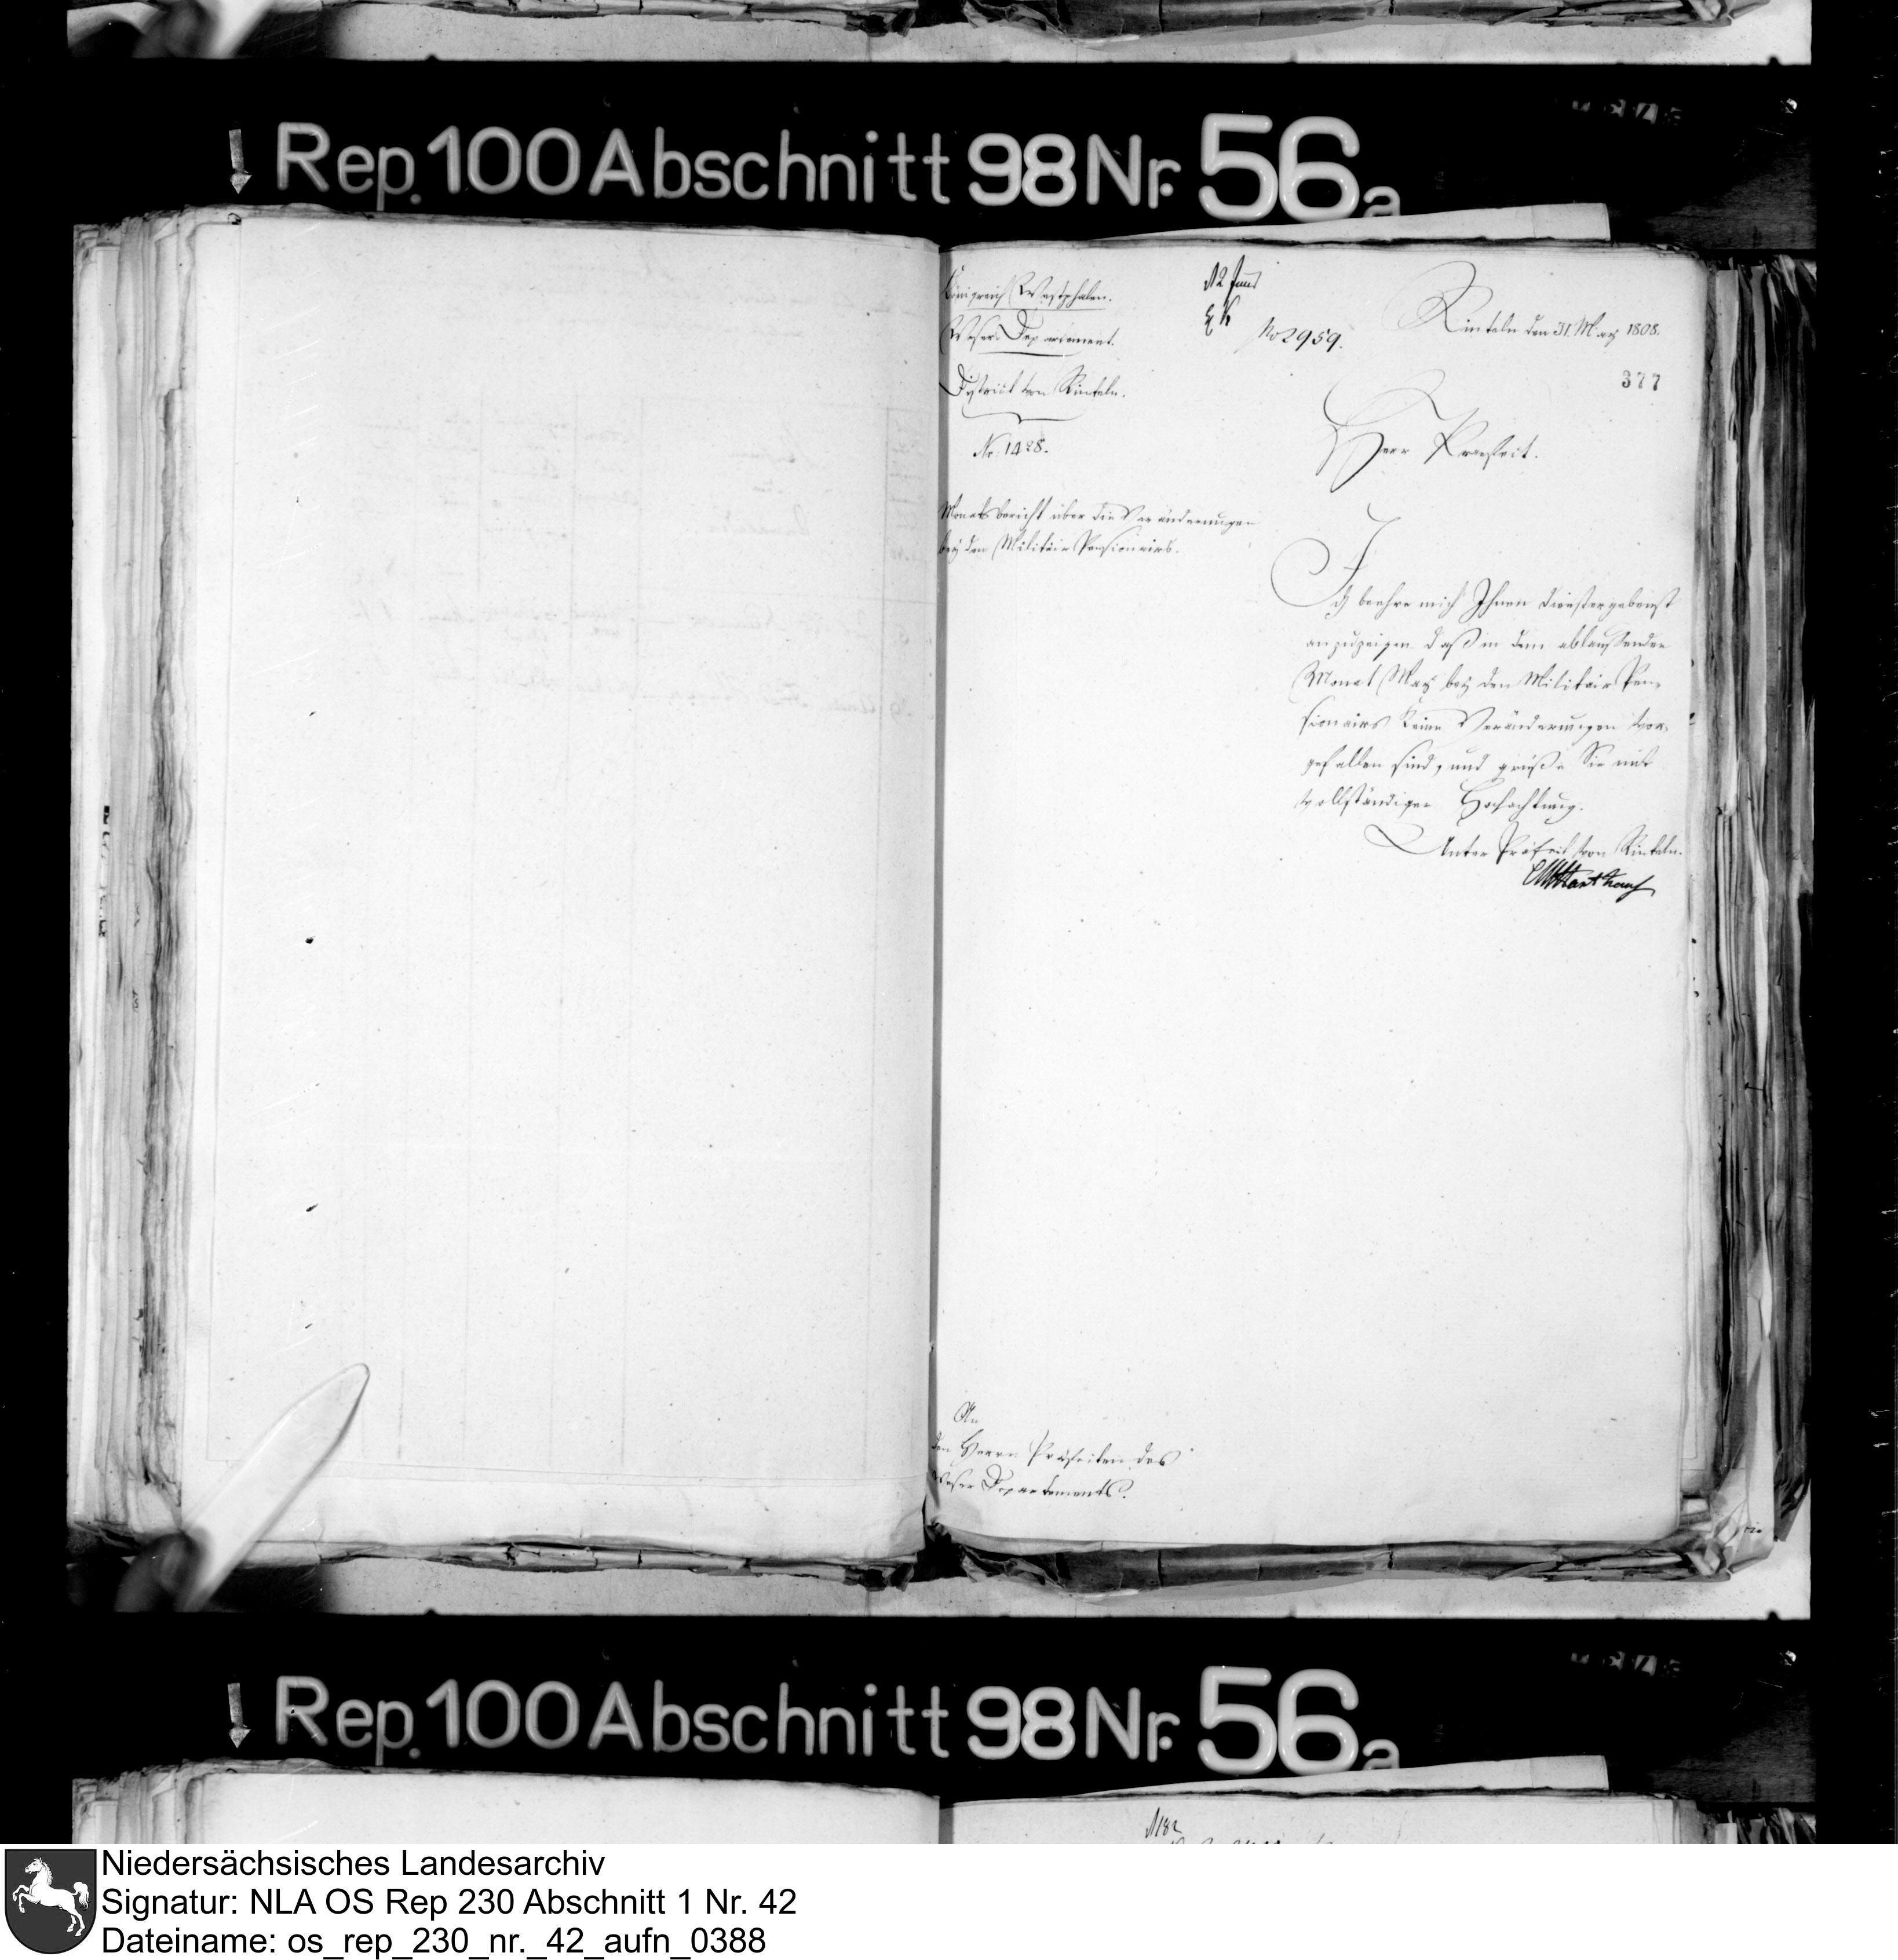 Rep. 100 Abschnitt 98 Nr. 56a
Königreich Westphalen.
Weser Departement.
District von Rinteln.
Nr. 1428.
Monatsbericht über die Veränderungen
bey den Militair Pensionairs.
2 Juni
No 2959.
Rinteln den 31. May 1808.
377
Herr Praefect.
Ich beehre mich Ihnen dienstergebenst
anzuzeigen daß in dem ablaufenden
Monat May bey den Militair Pen-
sionairs keine Veränderungen vor-
gefallen sind, und grüße Sie mit
vollständiger Hochachtung.
Unter Präfect von Rinteln.
An
den Herrn Präfecten des
Weser Departements.
Rep. 100 Abschnitt 98 Nr. 56a
Niedersächsisches Landesarchiv
Signatur: NLA OS Rep 230 Abschnitt 1 Nr. 42
Dateiname: os_rep_230_nr._42_aufn_0388